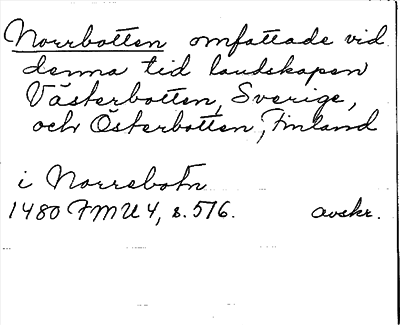 Norrbotten omfattade vid
denna tid landskapen
Västerbotten, Sverige,
och Österbotten, Finland
i Norrebotn
1480 FMU 4, s. 516. avskr.